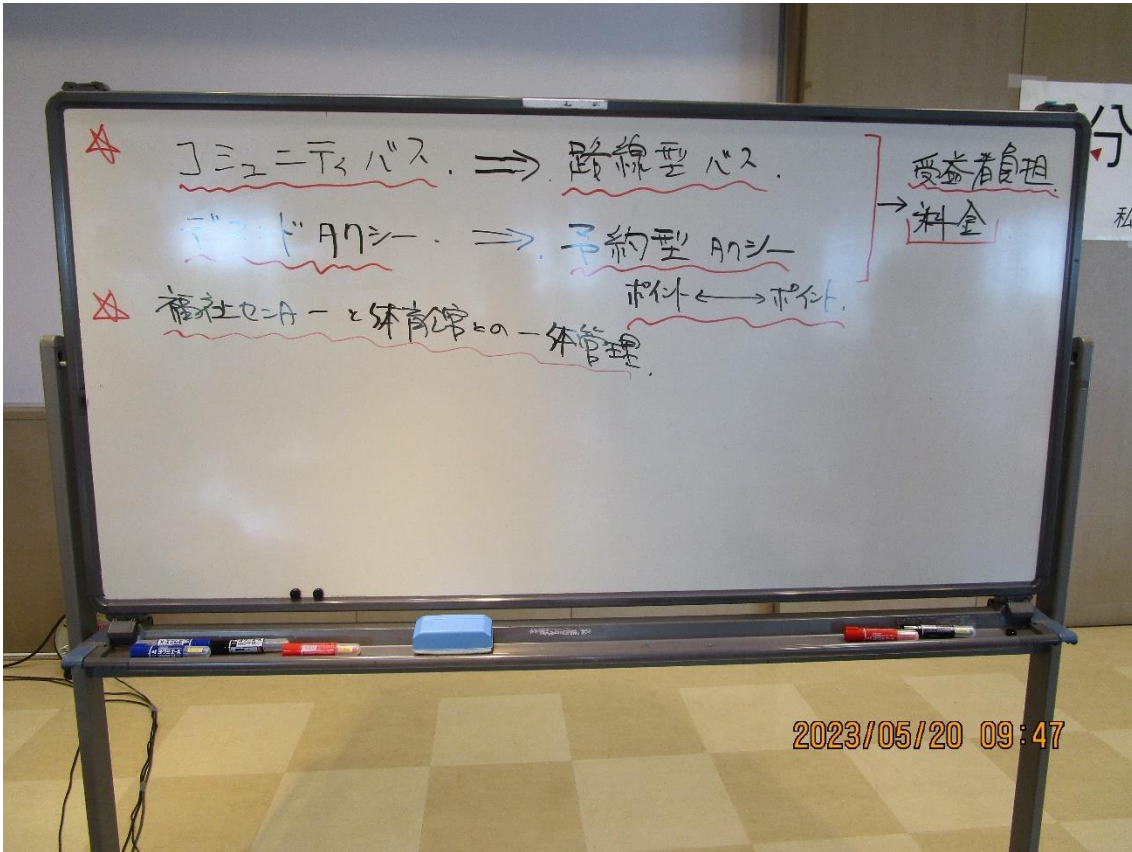 ☆ コミュニティバス. ⇒ 路線型バス.
デマンドタクシー. ⇒ 予約型タクシー
ポイント ←→ ポイント.
→ 受益者負担
料金
☆ 福祉センターと体育館との一体管理.
分
私
2023/05/20 09:47